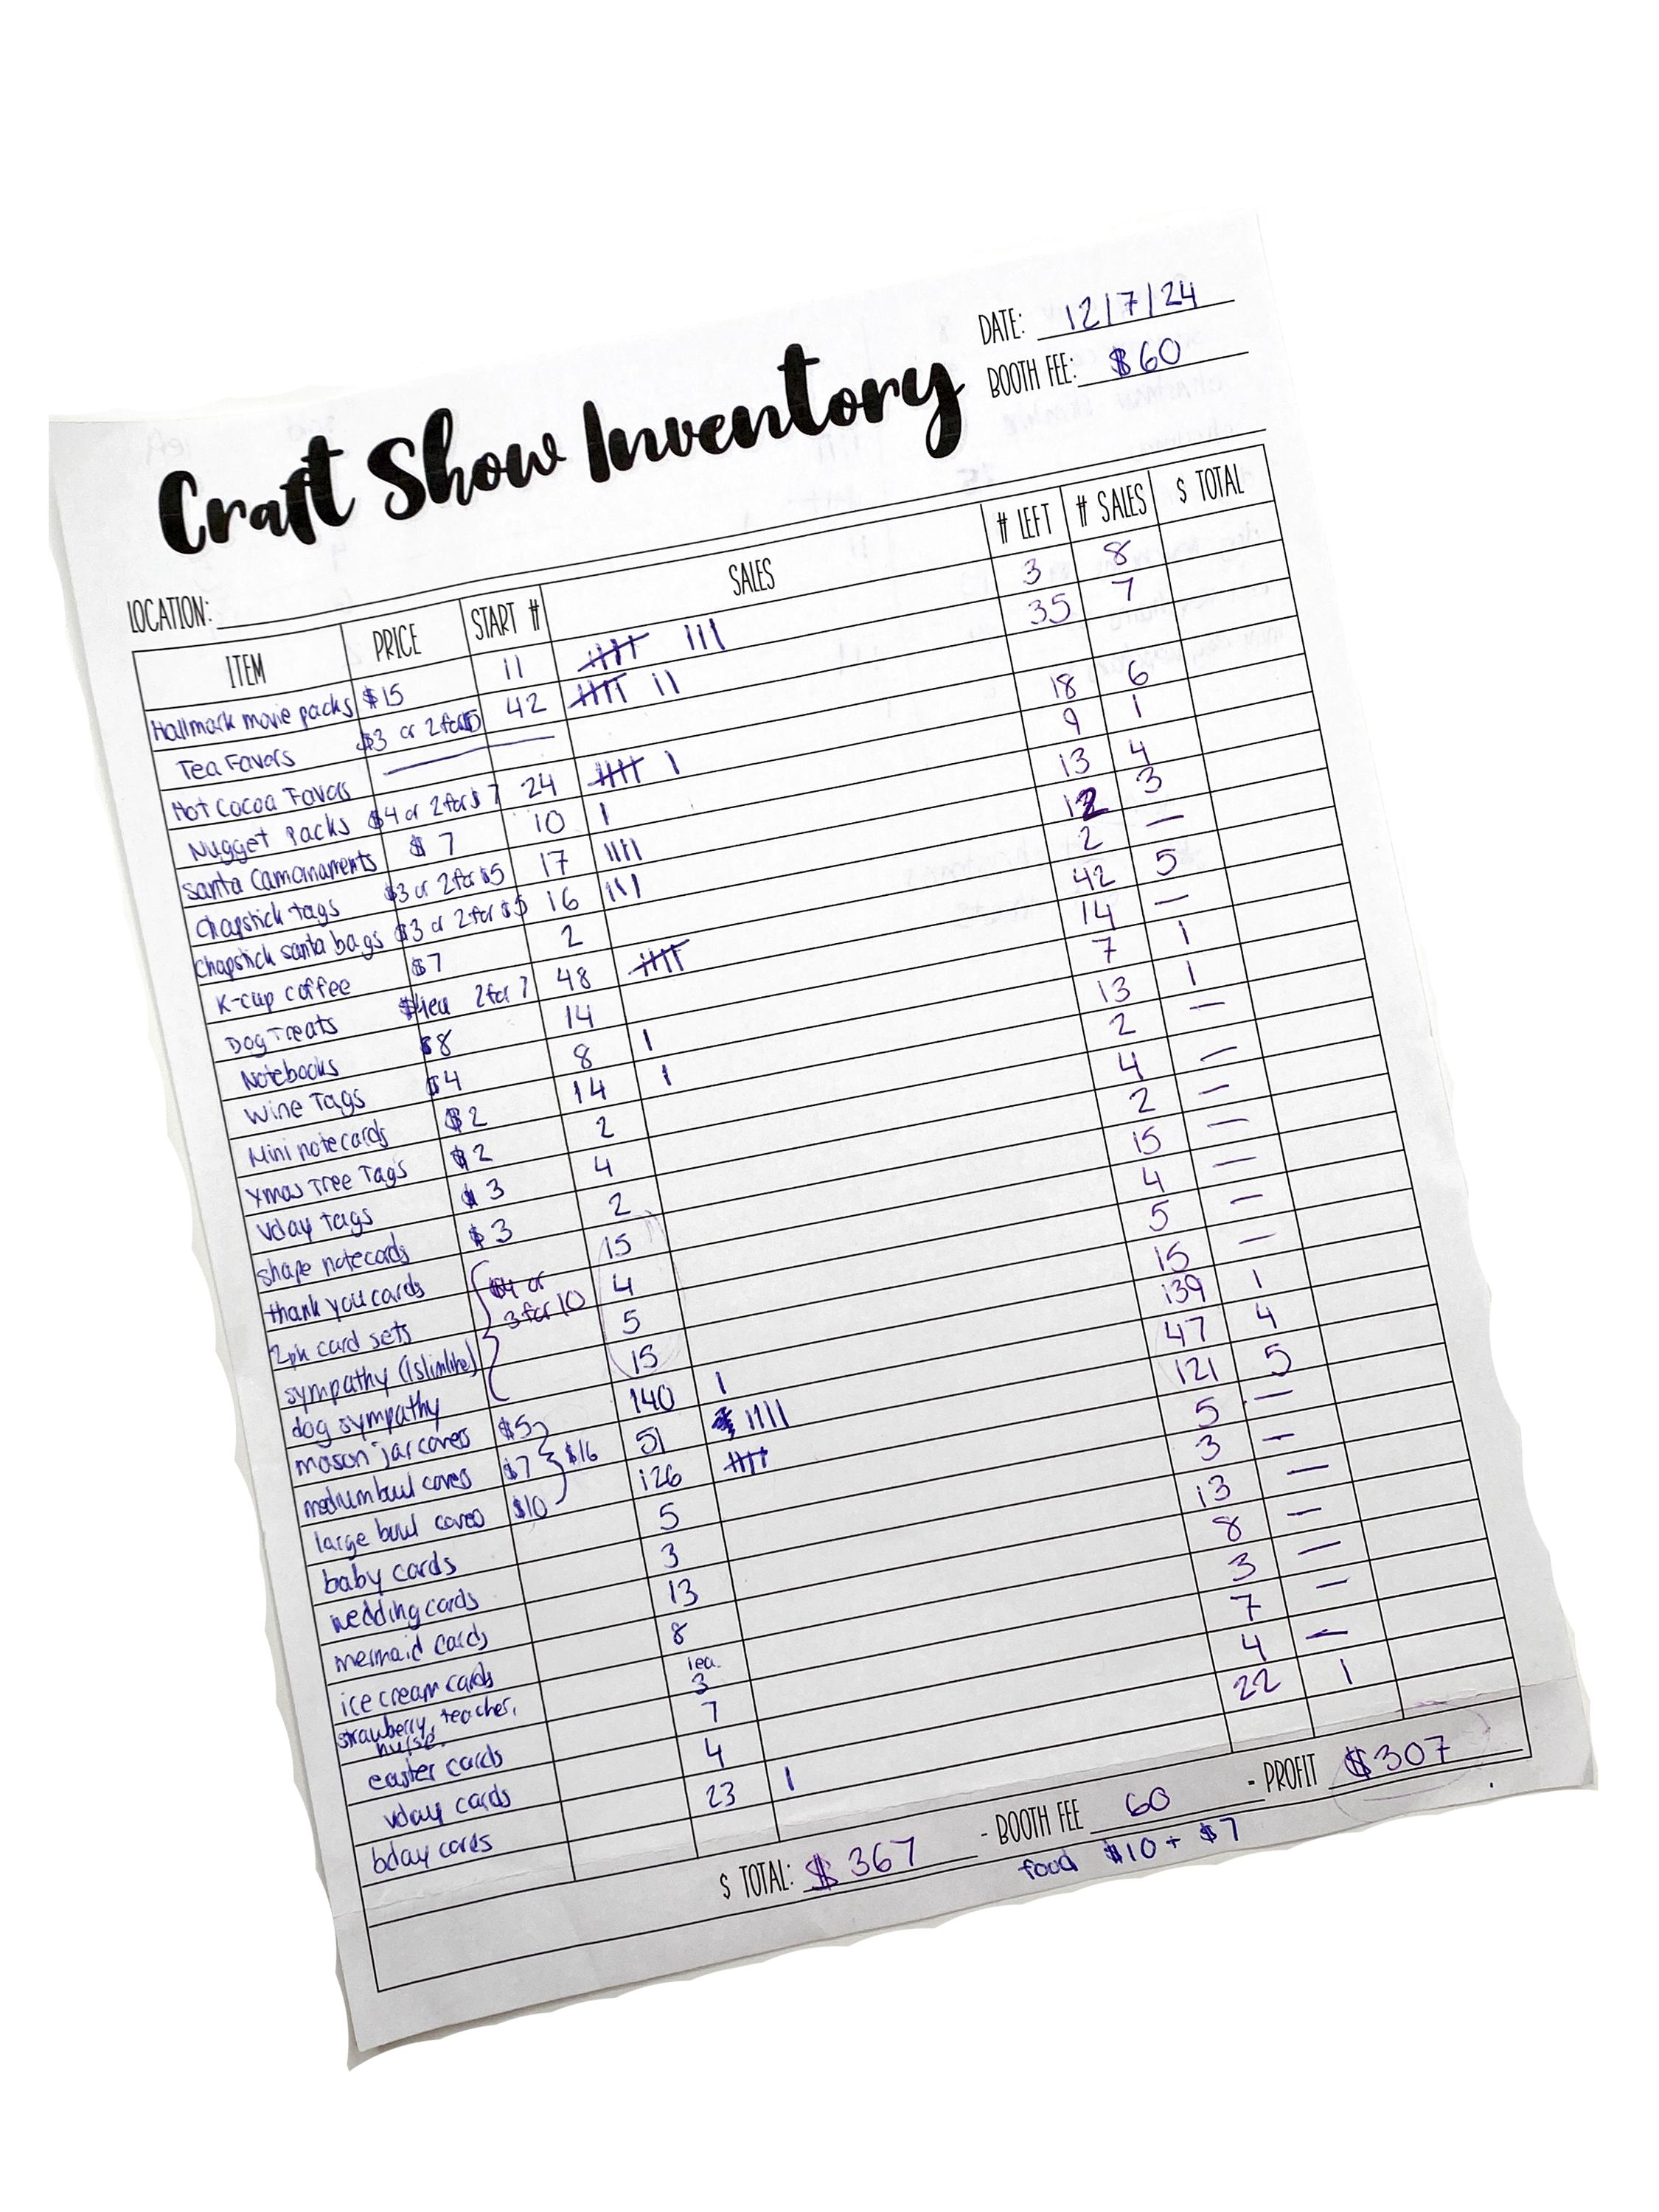 DATE: 12/7/24
BOOTH FEE: $60
Craft Show Inventory
LOCATION:
ITEM PRICE START # SALES # LEFT # SALES $ TOTAL
Hallmark movie packs $15 11 3 8
Tea Favors $3 or 2 for $5 42 35 7
Hot Cocoa Favors
Nugget Packs $4 or 2 for $7 24 18 6
Santa Cam ornaments $7 10 9 1
Chapstick tags $3 or 2 for $5 17 13 4
Chapstick santa bags $3 or 2 for $5 16 12 3
K-cup coffee $7 2 2 —
Dog Treats $4ea 2 for 7 48 42 5
Notebooks $8 14 14 —
Wine Tags $4 8 7 1
Mini notecards $2 14 13 1
Xmas Tree Tags $2 2 2 —
Vday tags $3 4 4 —
shape notecards $3 2 2 —
thank you cards $4 or 15 15 —
2pk card sets 3 for 10 4 4 —
sympathy (1 slimline) 5 5 —
dog sympathy 15 15 —
mason jar covers $5 140 139 1
medium bowl covers $7 $16 51 47 4
large bowl covers $10 126 121 5
baby cards 5 5 —
wedding cards 3 3 —
mermaid cards 13 13 —
ice cream cards 8 8 —
strawberry, teacher, nurse. 1ea. 3 3 —
easter cards 7 7 —
vday cards 4 4 —
bday cards 23 22 1
$ TOTAL: $367 - BOOTH FEE 60 = PROFIT $307
food $10 + $7